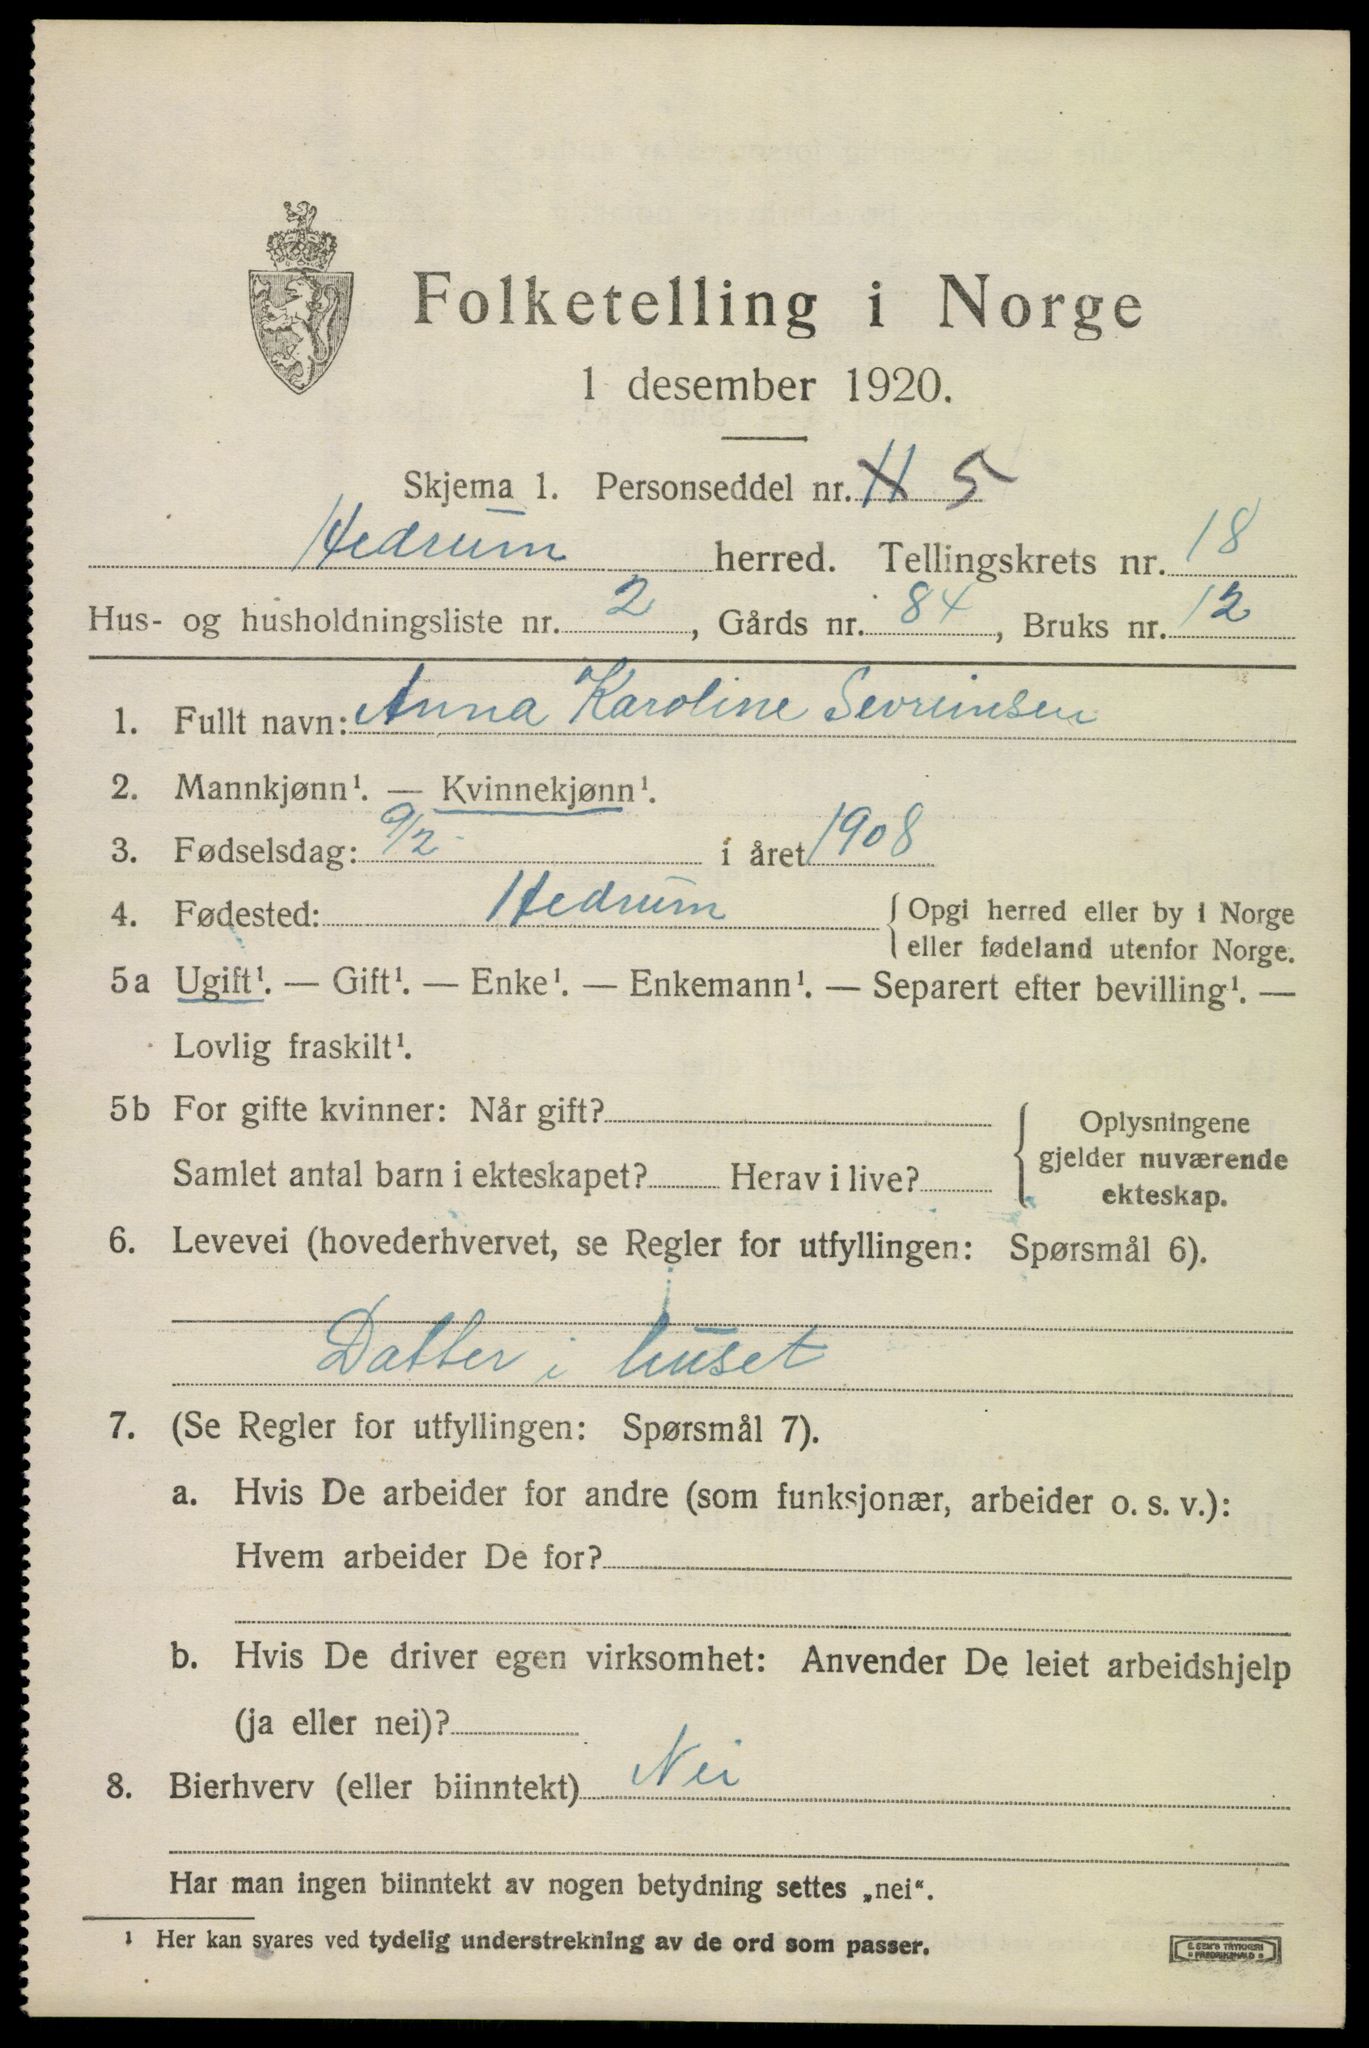 Folketelling i Norge
1 desember 1920.
Skjema 1. Personseddel nr. 5
Hedrum herred. Tellingskrets nr. 18
Hus- og husholdningsliste nr. 2, Gårds nr. 84, Bruks nr. 12
1. Fullt navn: Anna Karoline Sevrinsen
2. Mannkjønn¹. — Kvinnekjønn¹.
3. Fødselsdag: 9/2 i året 1908
4. Fødested: Hedrum { Opgi herred eller by i Norge
eller fødeland utenfor Norge.
5a Ugift¹. — Gift¹. — Enke¹. — Enkemann¹. — Separert efter bevilling¹. —
Lovlig fraskilt¹.
5b For gifte kvinner: Når gift?
Samlet antal barn i ekteskapet? Herav i live?
Oplysningene
gjelder nuværende
ekteskap.
6. Levevei (hovederhvervet, se Regler for utfyllingen: Spørsmål 6).
Datter i huset
7. (Se Regler for utfyllingen: Spørsmål 7).
a. Hvis De arbeider for andre (som funksjonær, arbeider o. s. v.):
Hvem arbeider De for?
b. Hvis De driver egen virksomhet: Anvender De leiet arbeidshjelp
(ja eller nei)?
8. Bierhverv (eller biinntekt) Nei
Har man ingen biinntekt av nogen betydning settes „nei“.
¹ Her kan svares ved tydelig understrekning av de ord som passer.
E. SEM'S TRYKKERI
FREDRIKSHALD